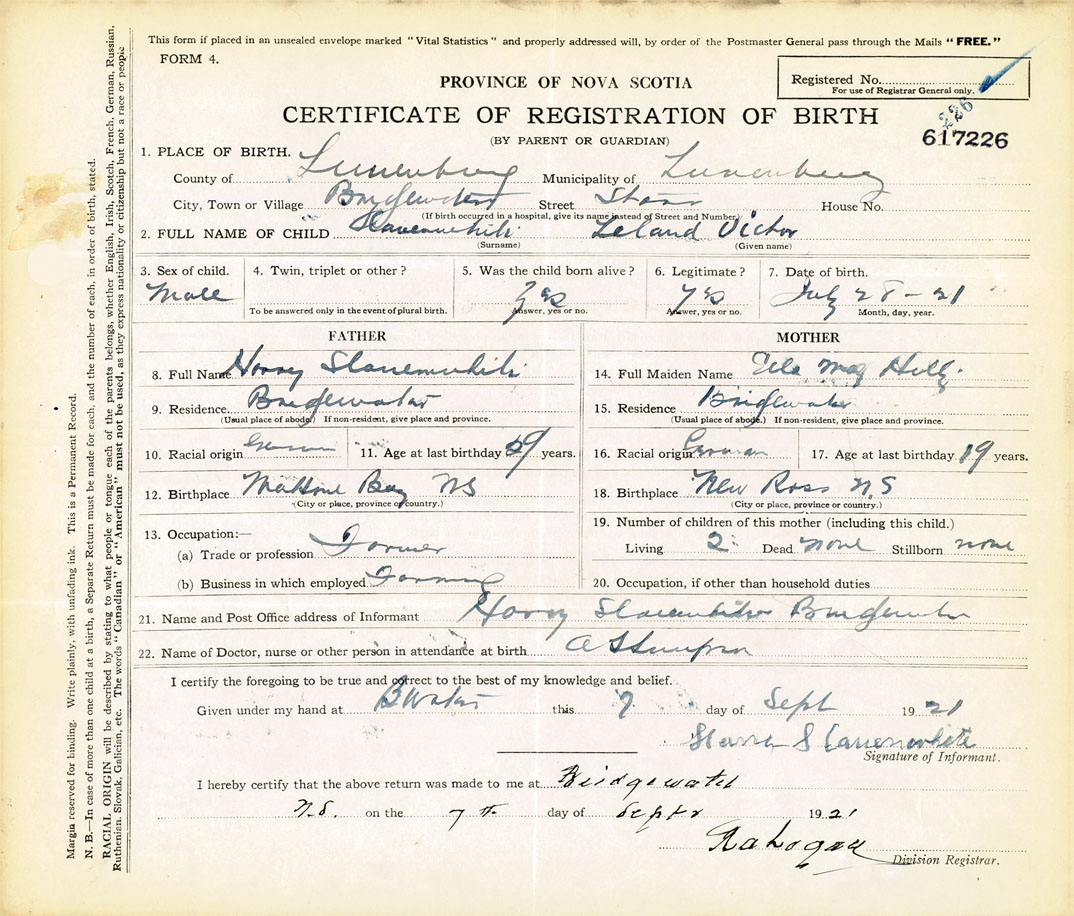 This form if placed in an unsealed envelope marked "Vital Statistics" and properly addressed will, by order of the Postmaster General pass through the Mails "FREE."
FORM 4.
Registered No.
For use of Registrar General only.
PROVINCE OF NOVA SCOTIA
CERTIFICATE OF REGISTRATION OF BIRTH
226
617226
(BY PARENT OR GUARDIAN)
1. PLACE OF BIRTH.
County of Lunenburg Municipality of Lunenburg
City, Town or Village Bridgewater Street House No.
(If birth occurred in a hospital, give its name instead of Street and Number)
2. FULL NAME OF CHILD Slauenwhite Leland Victor
(Surname) (Given name)
3. Sex of child. 4. Twin, triplet or other? 5. Was the child born alive? 6. Legitimate? 7. Date of birth.
Male Yes Yes July 28-21
To be answered only in the event of plural birth. Answer, yes or no. Answer, yes or no. Month, day, year.
FATHER
8. Full Name Harry Slauenwhite
9. Residence Bridgewater
(Usual place of abode.) If non-resident, give place and province.
10. Racial origin German 11. Age at last birthday 29 years.
12. Birthplace Mahone Bay NS
(City or place, province or country.)
13. Occupation:—
(a) Trade or profession Farmer
(b) Business in which employed Farming
MOTHER
14. Full Maiden Name May
15. Residence Bridgewater
(Usual place of abode.) If non-resident, give place and province.
16. Racial origin German 17. Age at last birthday 19 years.
18. Birthplace New Ross N.S
(City or place, province or country.)
19. Number of children of this mother (including this child.)
Living 2 Dead none Stillborn none
20. Occupation, if other than household duties
21. Name and Post Office address of Informant Harry Slauenwhite Bridgewater
22. Name of Doctor, nurse or other person in attendance at birth
I certify the foregoing to be true and correct to the best of my knowledge and belief.
Given under my hand at BWater this 7 day of Sept 1921
Slauenwhite
Signature of Informant.
I hereby certify that the above return was made to me at Bridgewater
N.S. on the 7th day of Septr 1921
Division Registrar.
Margin reserved for binding. Write plainly, with unfading ink. This is a Permanent Record.
N. B.—In case of more than one child at a birth, a Separate Return must be made for each, and the number of each, in order of birth, stated.
RACIAL ORIGIN will be described by stating to what people or tongue each of the parents belongs, whether English, Irish, Scotch, French, German, Russian,
Ruthenian, Slovak, Galician, etc. The words "Canadian" or "American" must not be used, as they express nationality or citizenship but not a race or people